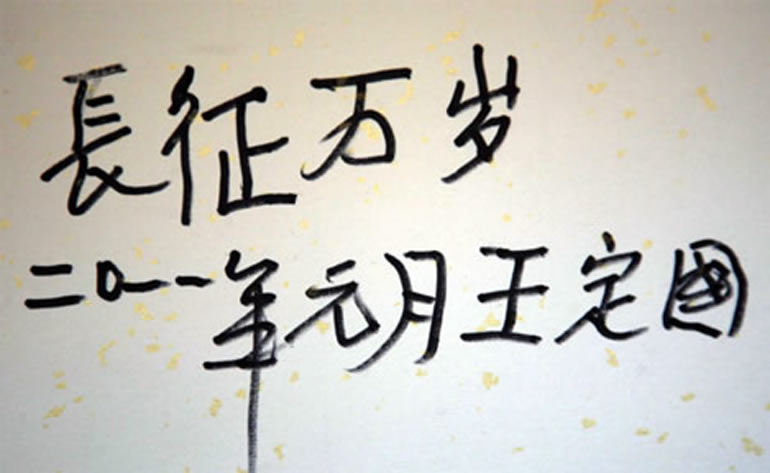 長征万岁
二〇一一年元月王定國